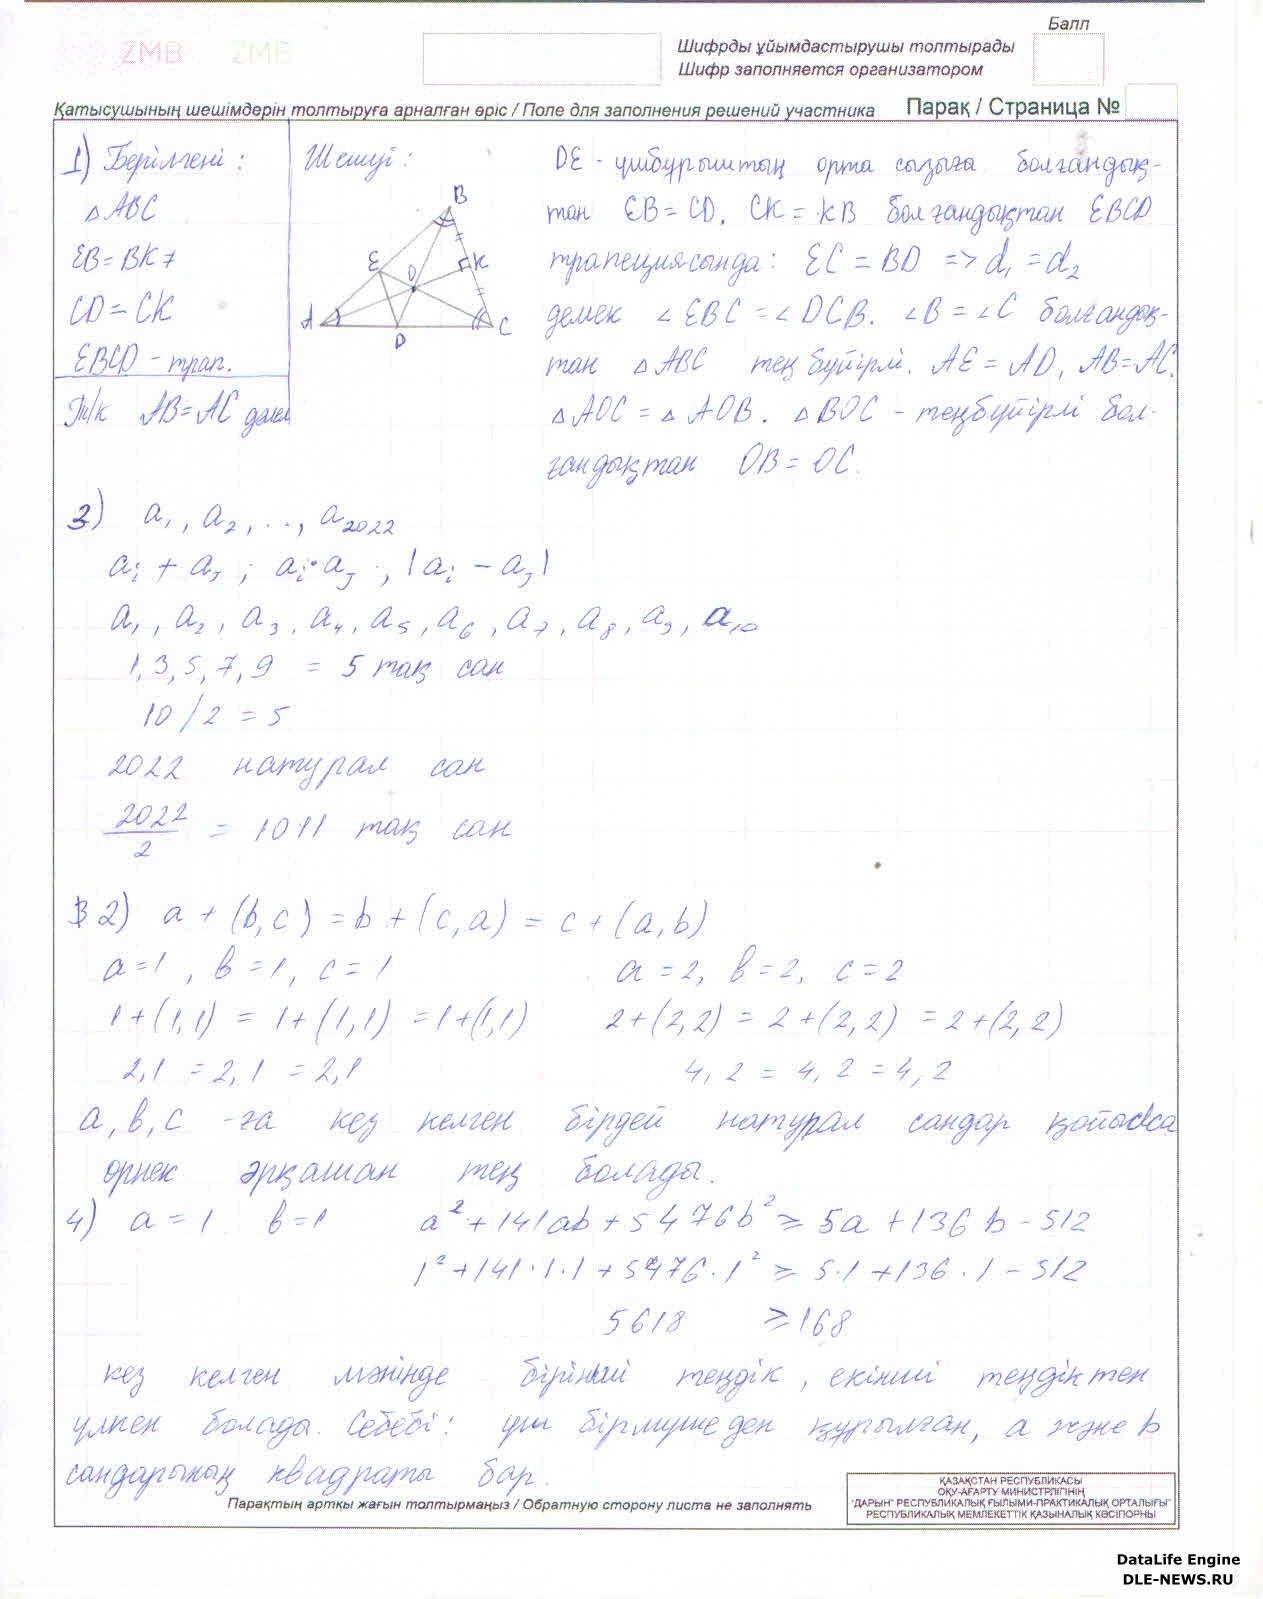 ZMB ZMB
Балл
Шифрды ұйымдастырушы толтырады
Шифр заполняется организатором
Қатысушының шешімдерін толтыруға арналған өріс / Поле для заполнения решений участника Парақ / Страница №
1) Берілгені:
△ABC
EB = BK
CD = CK
EBCD - трап.
Т/к AB = AC дәлел
Шешуі:
B
E
K
O
A
D
C
DE - үшбұрыштың орта сызығы болғандық-
тан EB = CD. CK = KB болғандықтан EBCD
трапециясында: EC = BD => d₁ = d₂
демек ∠EBC = ∠DCB. ∠B = ∠C болғандық-
тан △ABC тең бүйірлі. AE = AD, AB = AC.
△AOC = △AOB. △BOC - теңбүйірлі бол-
ғандықтан OB = OC.
3) a₁, a₂, ..., a₂₀₂₂
aᵢ + aⱼ ; aᵢ · aⱼ ; |aᵢ - aⱼ|
a₁, a₂, a₃, a₄, a₅, a₆, a₇, a₈, a₉, a₁₀
1, 3, 5, 7, 9 = 5 тақ сан
10 / 2 = 5
2022 натурал сан
2022/2 = 1011 тақ сан
2) a + (b, c) = b + (c, a) = c + (a, b)
a = 1, b = 1, c = 1 a = 2, b = 2, c = 2
1 + (1, 1) = 1 + (1, 1) = 1 + (1, 1) 2 + (2, 2) = 2 + (2, 2) = 2 + (2, 2)
2, 1 = 2, 1 = 2, 1 4, 2 = 4, 2 = 4, 2
a, b, c -ға кез келген бірдей натурал сандар қойылса
өрнек әрқашан тең болады.
4) a = 1 b = 1 a² + 141ab + 5476b² ⩾ 5a + 136b - 512
1² + 141 · 1 · 1 + 5476 · 1² ⩾ 5 · 1 + 136 · 1 - 512
5618 ⩾ 168
кез келген мәнінде бірінші теңдік, екінші теңдіктен
үлкен болады. Себебі: үш бірмүшеден құрылған, a және b
сандарының квадраты бар.
Парақтың артқы жағын толтырмаңыз / Обратную сторону листа не заполнять
ҚАЗАҚСТАН РЕСПУБЛИКАСЫ
ОҚУ-АҒАРТУ МИНИСТРЛІГІНІҢ
"ДАРЫН" РЕСПУБЛИКАЛЫҚ ҒЫЛЫМИ-ПРАКТИКАЛЫҚ ОРТАЛЫҒЫ"
РЕСПУБЛИКАЛЫҚ МЕМЛЕКЕТТІК ҚАЗЫНАЛЫҚ КӘСІПОРНЫ
DataLife Engine
DLE-NEWS.RU